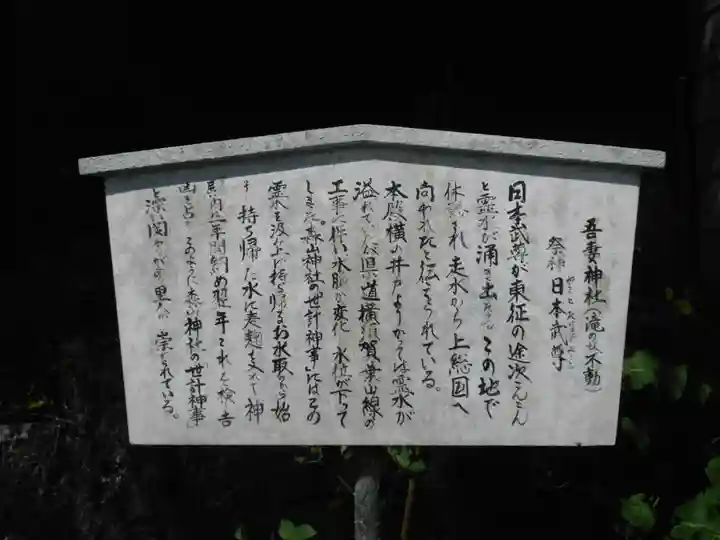 吾妻神社(滝の坂不動)
祭神 日本武尊
日本武尊が東征の途次こんこん
と霊水が涌き出る この地で
休まれ 走水から上総国へ
向われたと伝えられている。
本殿横の井戸よりかつては霊水が
溢れていたが県道横須賀葉山線の
工事に伴い水脈が変化し 水位が下って
しまった。森山神社の世計神事にはその
霊水を汲み上げ持ち帰るお水取りから始
持ち帰った水に麦麹を 神
殿内に一年間納め翌年これを検 吉
凶を占 このように森山神社の世計神事
と深い関 があり 崇 されている。